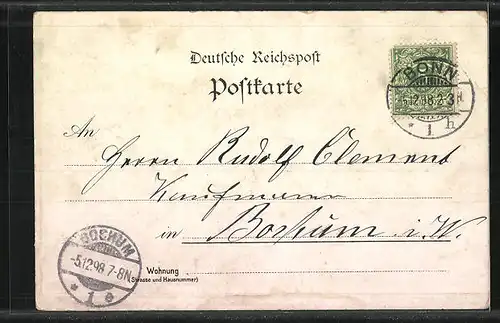 Deutsche Reichspost
Postkarte
BONN
5.12.98.2-3N
* 1 h
An
Herrn Rudolf Clemens
Kaufmann
in Bochum i. W.
BOCHUM
-5.12.98.7-8N
* 1 e
Wohnung
(Strasse und Hausnummer)